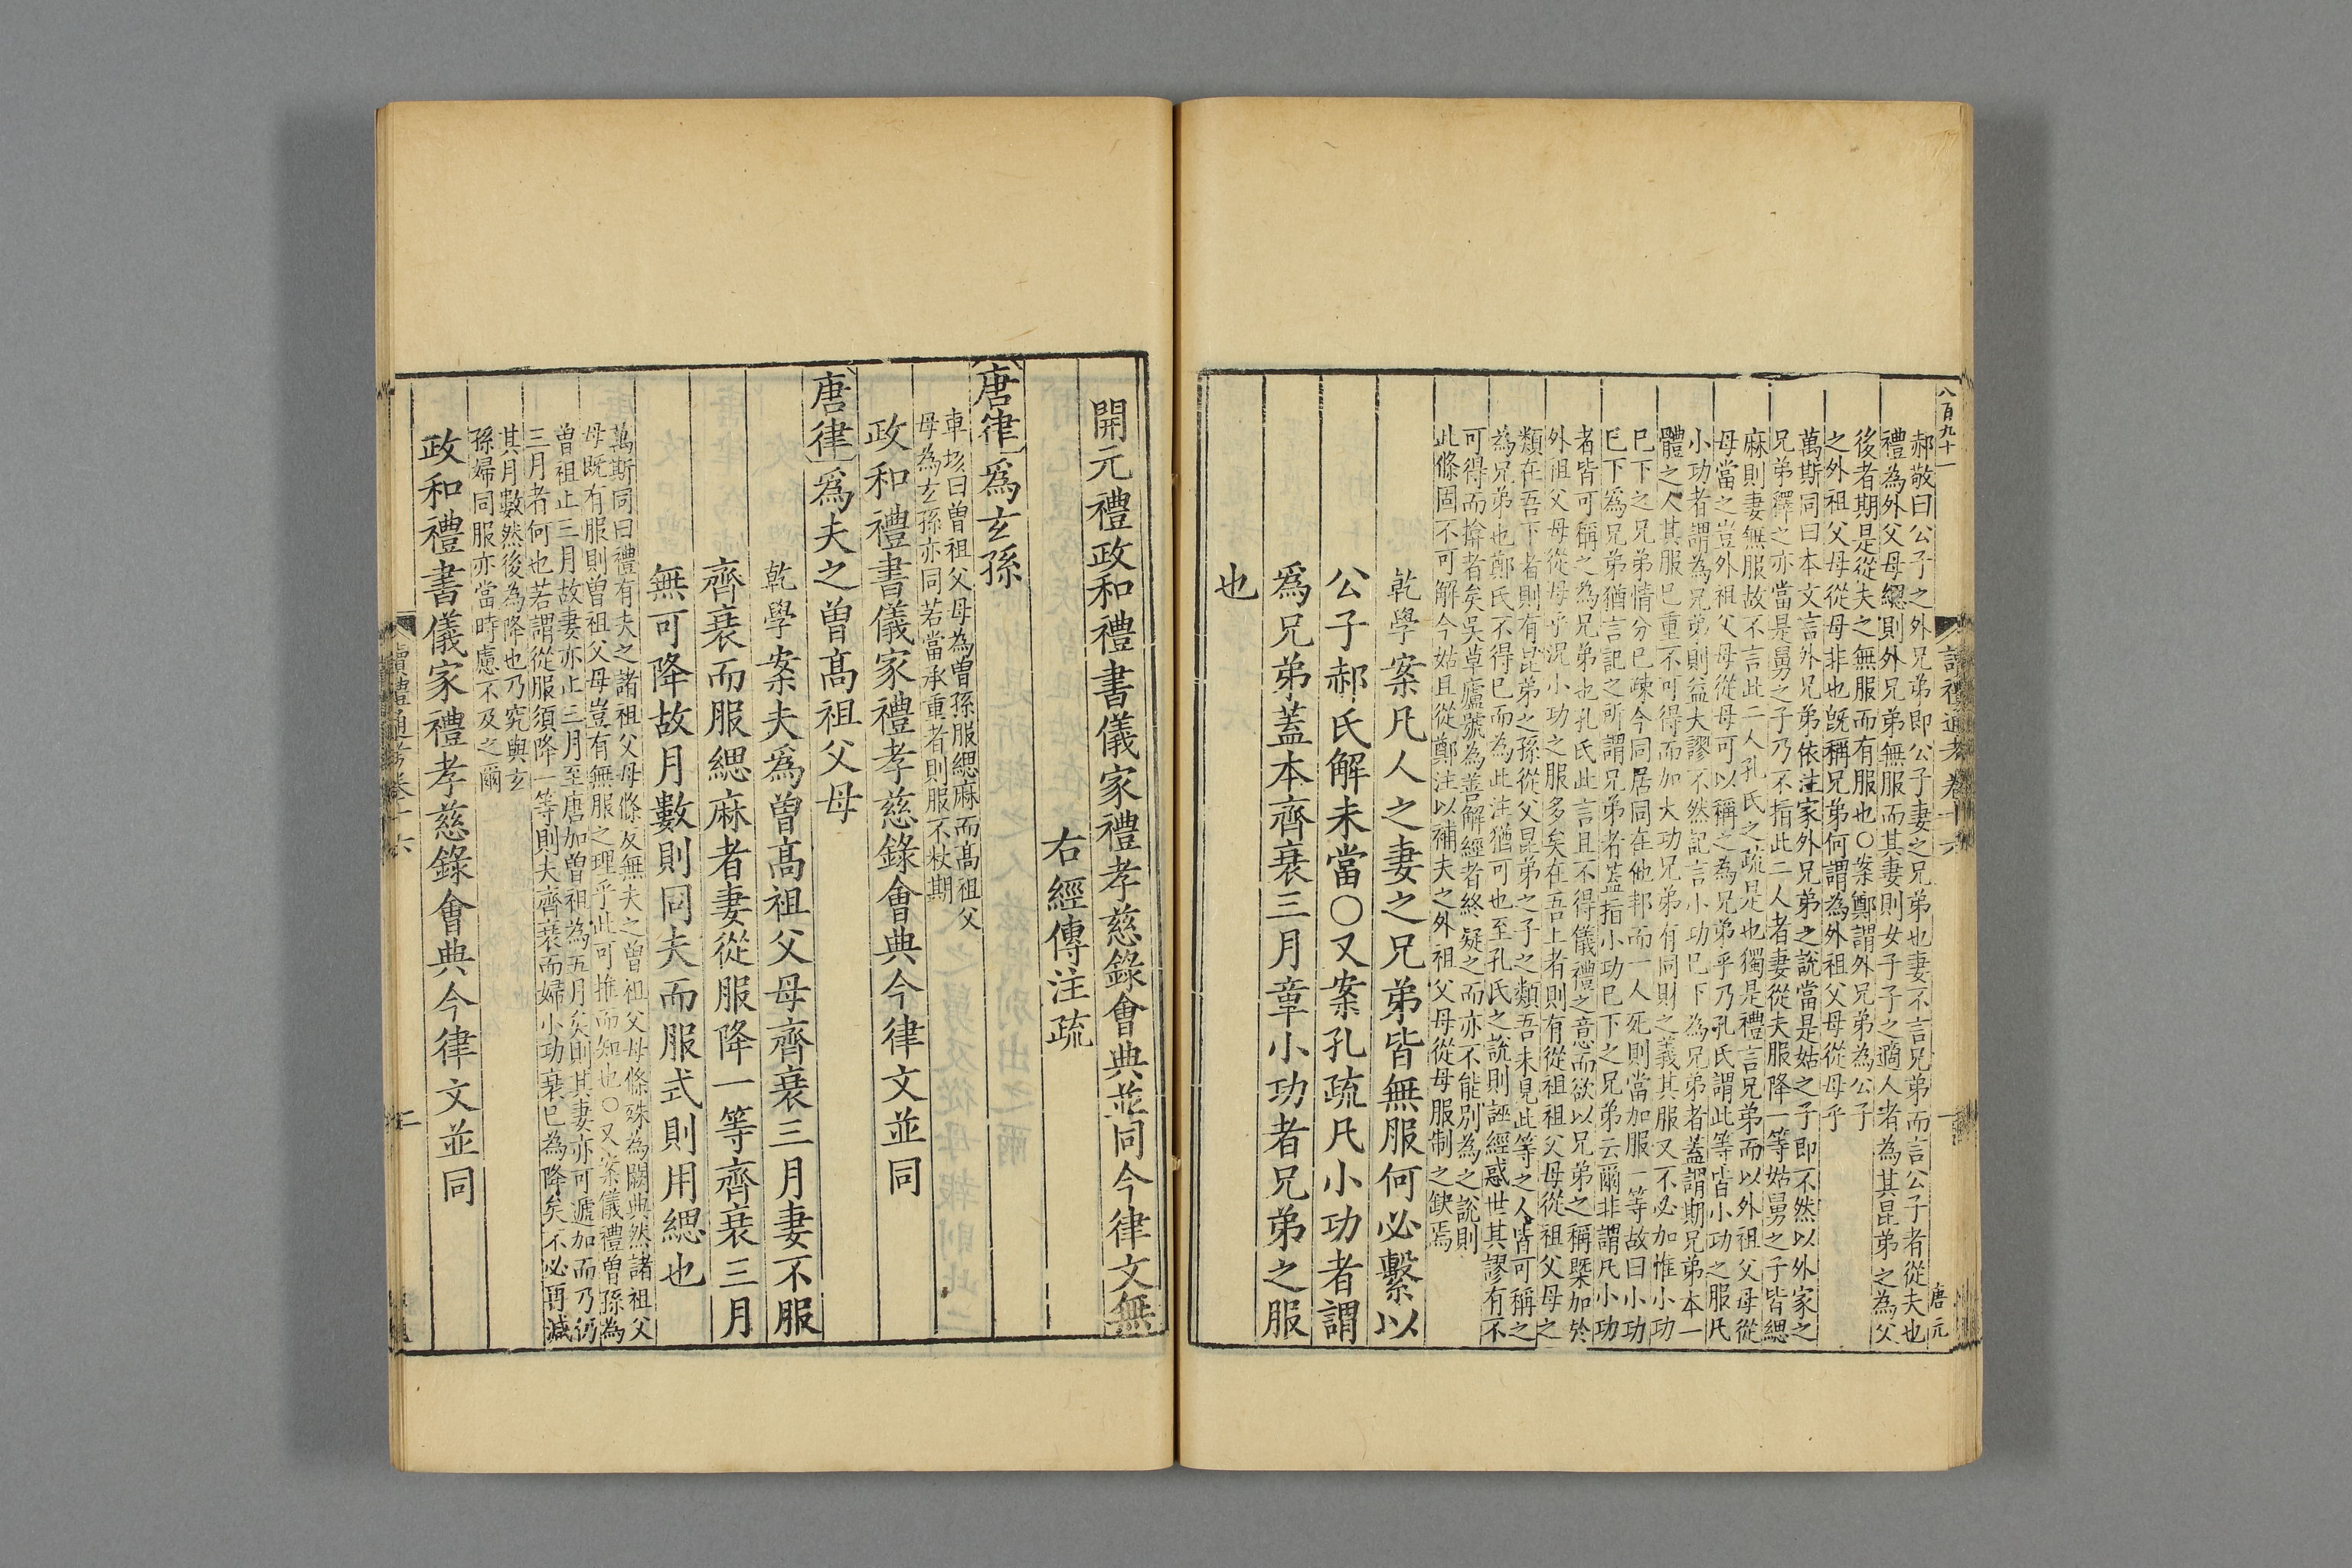 八百九十一
讀禮通考 卷十六
一
唐元
郝敬曰公子之外兄弟即公子妻之兄弟也妻不言兄弟而言公子者從夫也
禮為外父母緦則外兄弟無服而其妻則女子子之適人者為其昆弟之為父
後者期是從夫之無服而有服也〇案鄭謂外兄弟為公子
之外祖父母從母非也既稱兄弟何謂為外祖父母從母乎
萬斯同曰本文言外兄弟依注家外兄弟之說當是姑之子即不然以外家之
兄弟釋之亦當是舅之子乃不指此二人者妻從夫服降一等姑舅之子皆緦
麻則妻無服故不言此二人孔氏之疏是也獨是禮言兄弟而以外祖父母從
母當之豈外祖父母從母可以稱之為兄弟乎乃孔氏謂此等皆小功之服凡
小功者謂為兄弟則益大謬不然記言小功已下為兄弟者蓋謂期兄弟本一
體之人其服已重不可得而加大功兄弟有同財之義其服又不必加惟小功
已下之兄弟情分已疎今同居同在他邦而一人死則當加服一等故曰小功
已下為兄弟猶言記之所謂兄弟者蓋指小功已下之兄弟云爾非謂凡小功
者皆可稱之為兄弟也孔氏此言且不得儀禮之意而欲以兄弟之稱槩加於
外祖父母從母乎況小功之服多矣在吾上者則有從祖祖父母從祖父母之
類在吾下者則有昆弟之孫從父昆弟之子之類吾未見此等之人皆可稱之
為兄弟也鄭氏不得已而為此注猶可也至孔氏之說則誣經惑世其謬有不
可得而揜者矣吳草廬號為善解經者終疑之而亦不能別為之說則
此條固不可解今姑且從鄭注以補夫之外祖父母從母服制之缺焉
乾學案凡人之妻之兄弟皆無服何必繫以
公子郝氏解未當〇又案孔疏凡小功者謂
為兄弟蓋本齊衰三月章小功者兄弟之服
也
開元禮政和禮書儀家禮孝慈錄會典並同今律文無
右經傳注疏
唐律為玄孫
車垓曰曾祖父母為曾孫服緦麻而高祖父
母為玄孫亦同若當承重者則服不杖期
政和禮書儀家禮孝慈錄會典今律文並同
唐律為夫之曾高祖父母
乾學案夫為曾高祖父母齊衰三月妻不服
齊衰而服緦麻者妻從服降一等齊衰三月
無可降故月數則同夫而服式則用緦也
萬斯同曰禮有夫之諸祖父母條反無夫之曾祖父母條殊為闕典然諸祖父
母既有服則曾祖父母豈有無服之理乎此可推而知也〇又案儀禮曾孫為
曾祖止三月故妻亦止三月至唐加曾祖為五月矣則其妻亦可遞加而乃仍
三月者何也若謂從服須降一等則夫齊衰而婦小功衰已為降矣不必再減
其月數然後為降也乃究與玄
孫婦同服亦當時慮不及之爾
政和禮書儀家禮孝慈錄會典今律文並同
讀禮通考卷十六
二